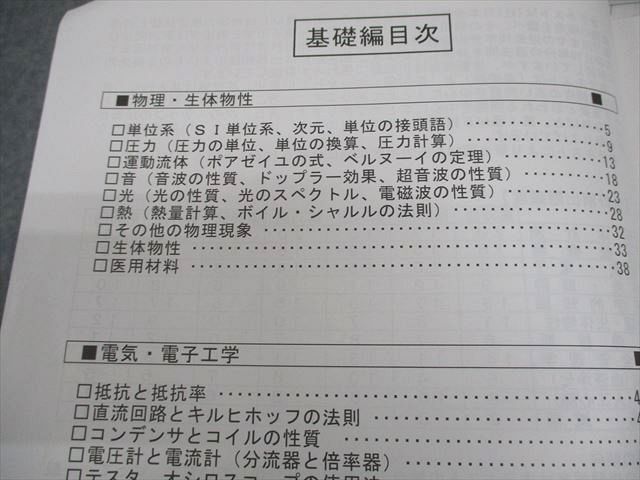 基礎編目次
■物理・生体物性 ■
□単位系（ＳＩ単位系、次元、単位の接頭語）‥‥‥‥‥‥‥‥5
□圧力（圧力の単位、単位の換算、圧力計算）‥‥‥‥‥‥‥‥9
□運動流体（ポアゼイユの式、ベルヌーイの定理）‥‥‥‥‥‥13
□音（音波の性質、ドップラー効果、超音波の性質）‥‥‥‥‥18
□光（光の性質、光のスペクトル、電磁波の性質）‥‥‥‥‥‥23
□熱（熱量計算、ボイル・シャルルの法則）‥‥‥‥‥‥‥‥‥28
□その他の物理現象‥‥‥‥‥‥‥‥‥‥‥‥‥‥‥‥‥‥‥‥32
□生体物性‥‥‥‥‥‥‥‥‥‥‥‥‥‥‥‥‥‥‥‥‥‥‥‥33
□医用材料‥‥‥‥‥‥‥‥‥‥‥‥‥‥‥‥‥‥‥‥‥‥‥‥38
■電気・電子工学
□抵抗と抵抗率‥‥‥‥‥‥‥‥‥‥‥‥‥‥‥‥‥‥‥‥‥‥4
□直流回路とキルヒホッフの法則‥‥‥‥‥‥‥‥‥‥‥‥‥‥
□コンデンサとコイルの性質‥‥‥‥‥‥‥‥‥‥‥‥‥‥‥‥
□電圧計と電流計（分流器と倍率器）‥‥‥‥‥‥‥‥‥‥‥‥